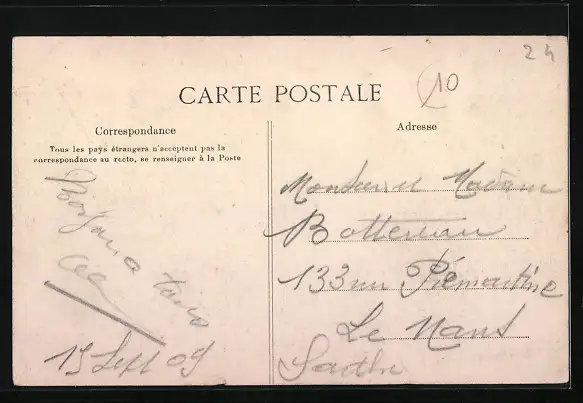 24
10
CARTE POSTALE
Correspondance
Tous les pays étrangers n'acceptent pas la
correspondance au recto, se renseigner à la Poste
Bonjour a tous
15 Sept 09
Adresse
Monsieur et Madame
Bottereau
133 rue Prémartine
Le Mans
Sarthe